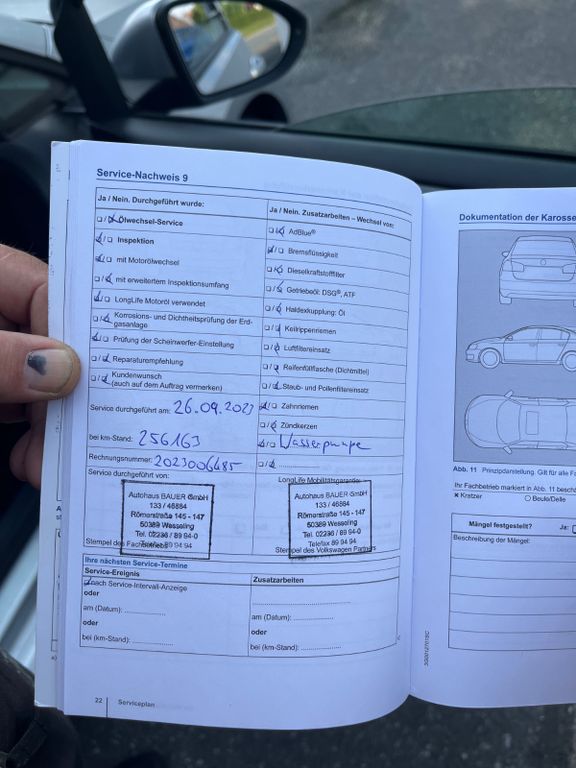 Service-Nachweis 9
Ja / Nein. Durchgeführt wurde:
Ölwechsel-Service
Inspektion
mit Motorölwechsel
mit erweitertem Inspektionsumfang
LongLife Motoröl verwendet
Korrosions- und Dichtheitsprüfung der Erd-
gasanlage
Prüfung der Scheinwerfer-Einstellung
Reparaturempfehlung
Kundenwunsch
(auch auf dem Auftrag vermerken)
Service durchgeführt am: 26.09.2023
bei km-Stand: 256163
Rechnungsnummer: 2023006485
Service durchgeführt von:
Autohaus BAUER GmbH
133 / 46884
Römerstraße 145 - 147
50389 Wesseling
Tel. 02236 / 89 94-0
Telefax 89 94 94
Stempel des Fachbetriebs
Ja / Nein. Zusatzarbeiten – Wechsel von:
AdBlue®
Bremsflüssigkeit
Dieselkraftstofffilter
Getriebeöl: DSG®, ATF
Haldexkupplung: Öl
Keilrippenriemen
Luftfiltereinsatz
Reifenfüllflasche (Dichtmittel)
Staub- und Pollenfiltereinsatz
Zahnriemen
Zündkerzen
Wasserpumpe
LongLife Mobilitätsgarantie:
Autohaus BAUER GmbH
133 / 46884
Römerstraße 145 - 147
50389 Wesseling
Tel. 02236 / 89 94-0
Telefax 89 94 94
Stempel des Volkswagen Partners
Ihre nächsten Service-Termine
Service-Ereignis
nach Service-Intervall-Anzeige
oder
am (Datum): ....................
oder
bei (km-Stand): ....................
Zusatzarbeiten
am (Datum): ....................
oder
bei (km-Stand): ....................
22 Serviceplan
Dokumentation der Karosse
Abb. 11 Prinzipdarstellung. Gilt für alle Fa
Ihr Fachbetrieb markiert in Abb. 11 besch
× Kratzer
Beule/Delle
Mängel festgestellt? Ja:
Beschreibung der Mängel: